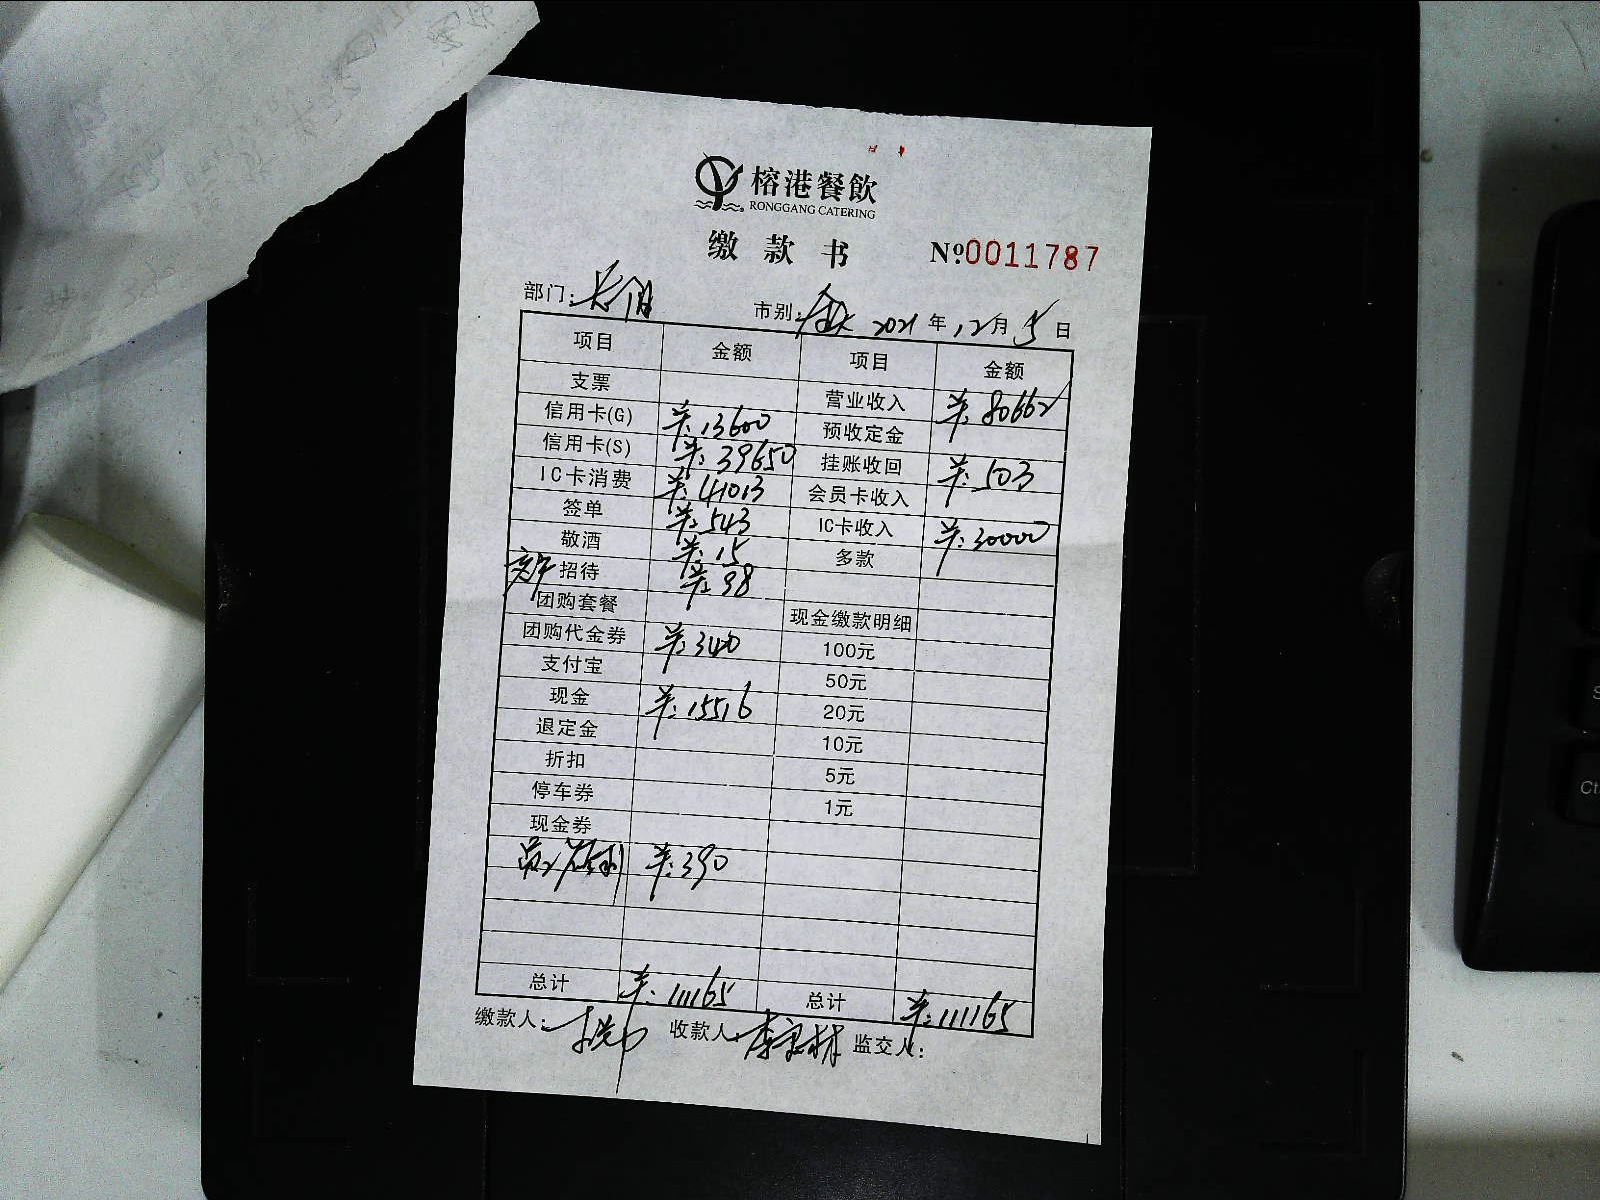 榕港餐飲
RONGGANG CATERING
缴款书 №0011787
部门: 市别: 2021年12月5日
项目 金额 项目 金额
支票 营业收入 ¥:80662
信用卡(G) ¥:13600 预收定金
信用卡(S) ¥:39650 挂账收回 ¥:503
IC卡消费 ¥:41013 会员卡收入
签单 ¥:543 IC卡收入 ¥:30000
敬酒 ¥:15 多款
招待 ¥:98
团购套餐 现金缴款明细
团购代金券 ¥:340 100元
支付宝 50元
现金 ¥:15516 20元
退定金 10元
折扣 5元
停车券 1元
现金券
员工福利 ¥:390
总计 ¥:111165 总计 ¥:111165
缴款人: 收款人: 监交人: